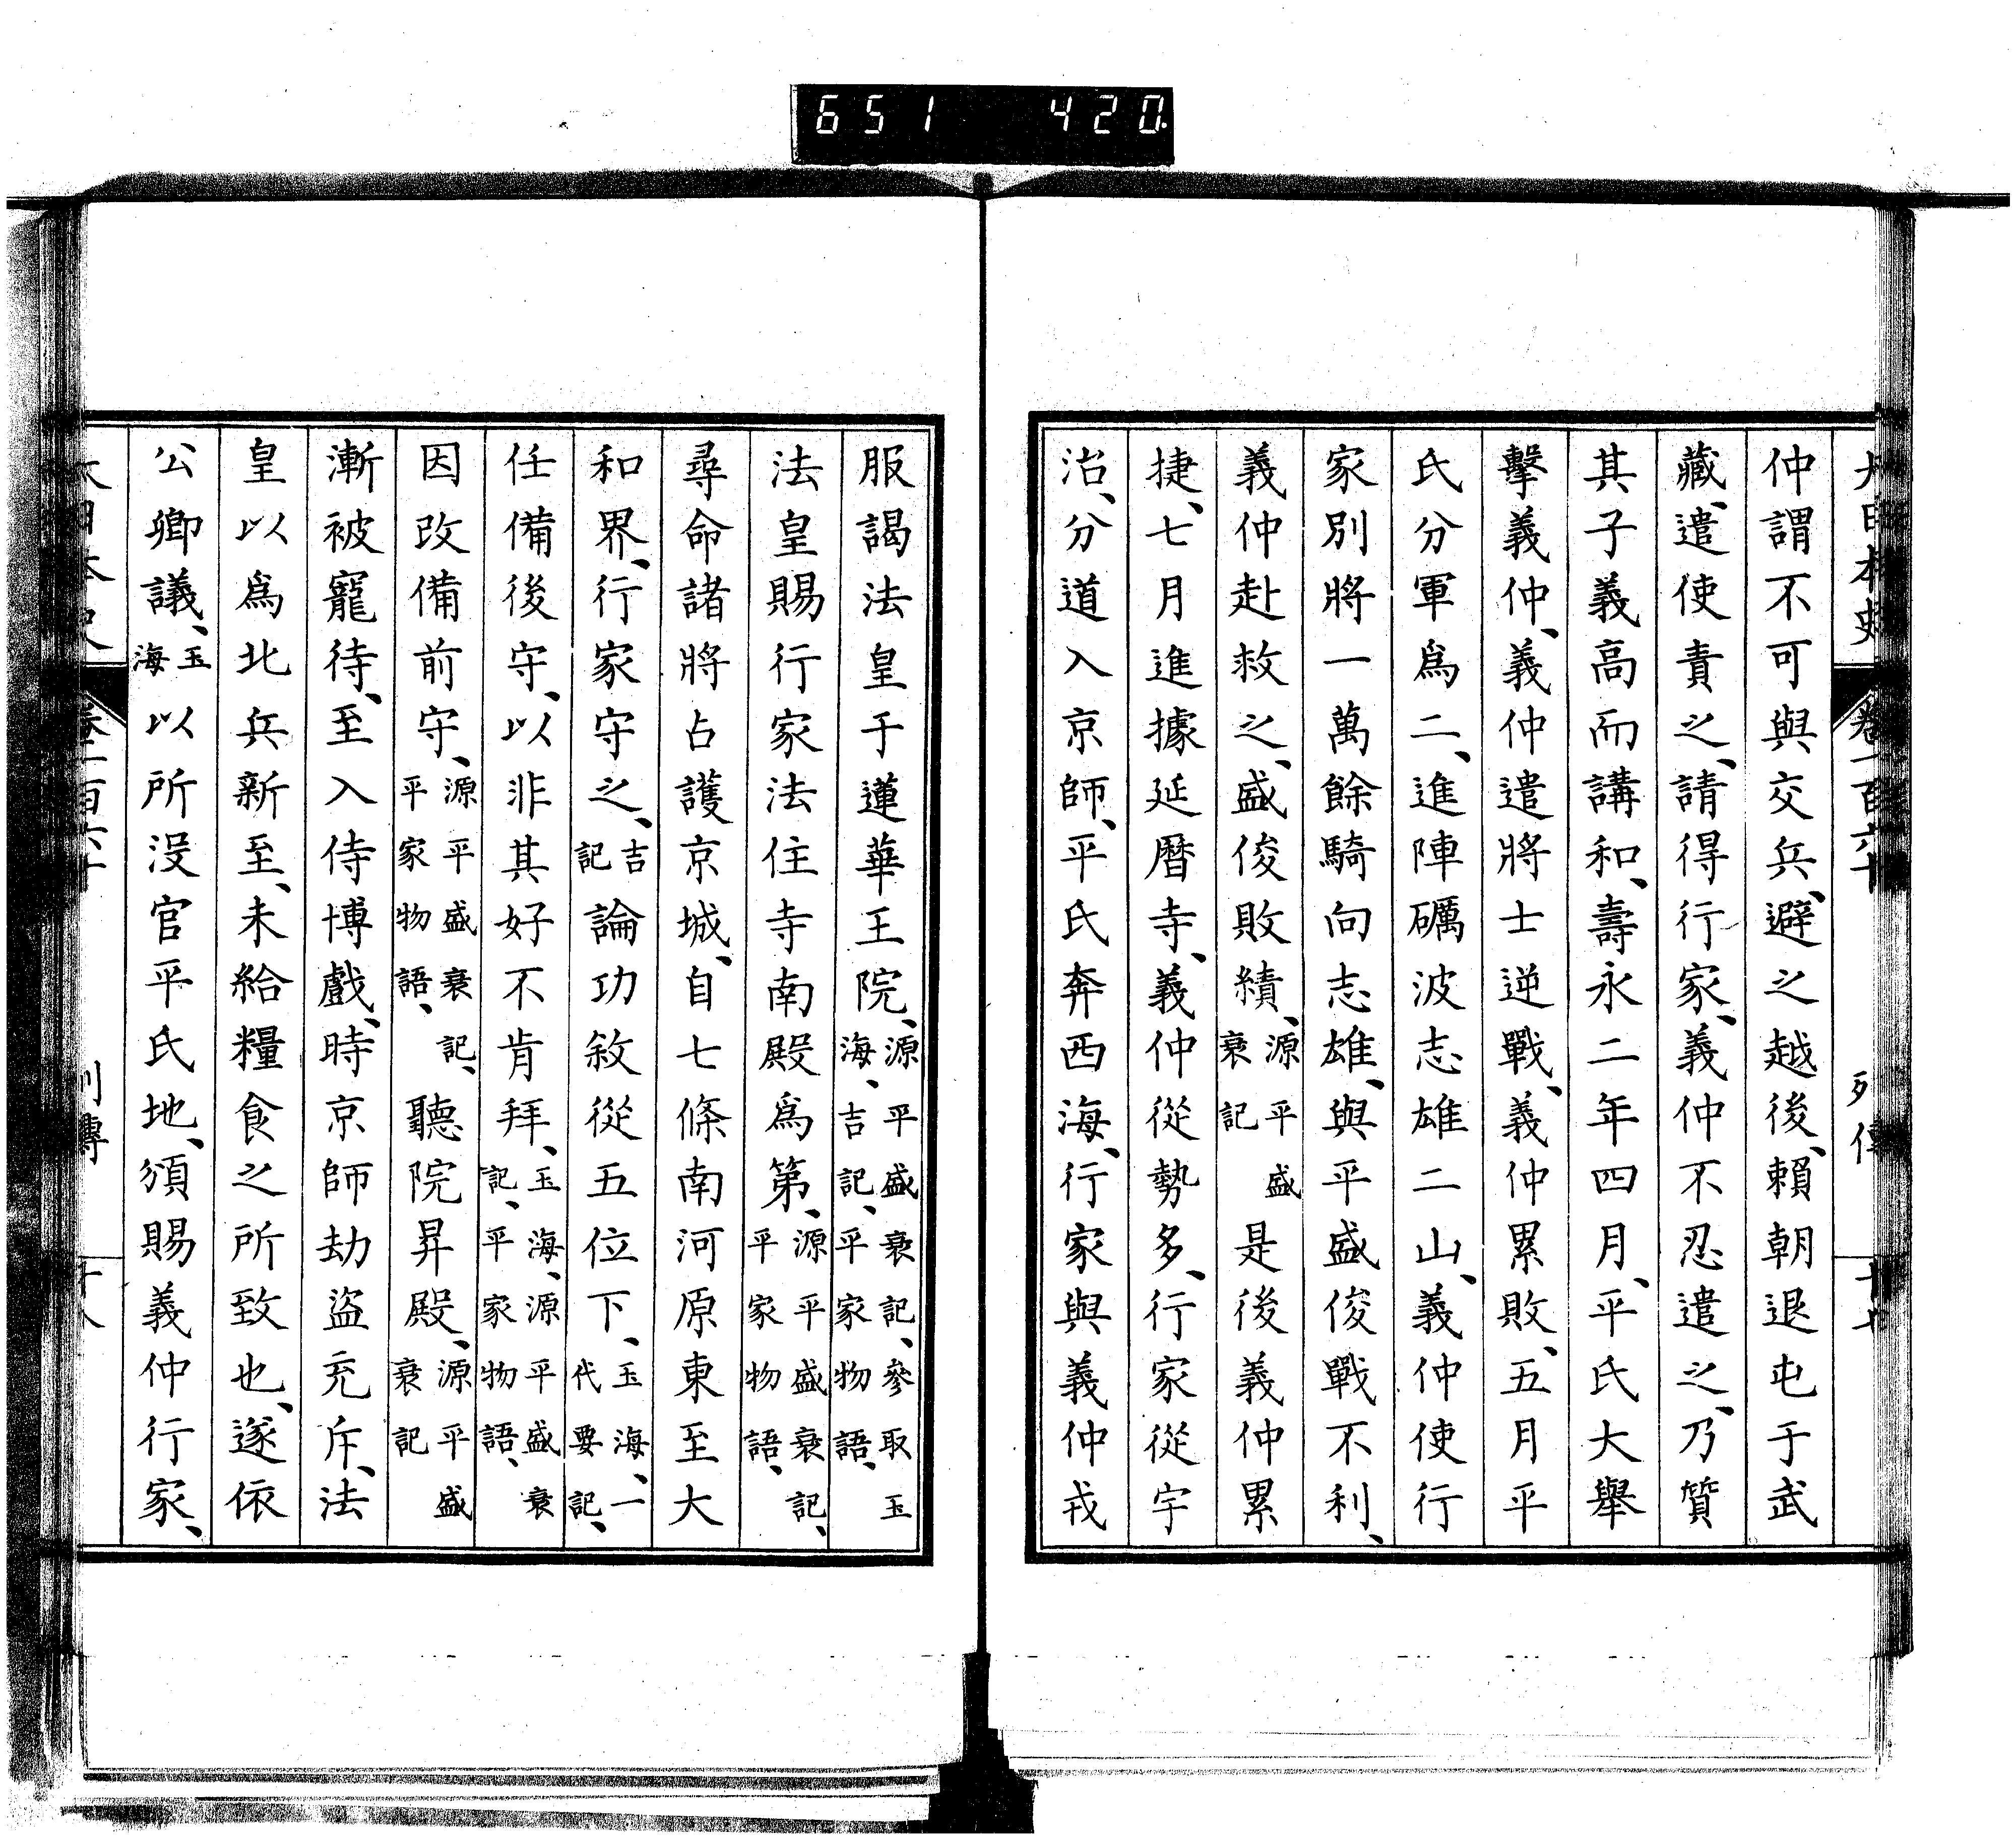 651 420
大日本史 卷一百六十 列傳 十七
仲謂不可與交兵、避之越後、賴朝退屯于武
藏、遣使責之、請得行家、義仲不忍遣之、乃質
其子義高而講和、壽永二年四月、平氏大舉
擊義仲、義仲遣將士逆戰、義仲累敗、五月平
氏分軍爲二、進陣礪波志雄二山、義仲使行
家別將一萬餘騎向志雄、與平盛俊戰不利、
義仲赴救之、盛俊敗績、源平盛衰記是後義仲累
捷、七月進據延曆寺、義仲從勢多、行家從宇
治、分道入京師、平氏奔西海、行家與義仲戎
服謁法皇于蓮華王院、源平盛衰記、參取玉海、吉記、平家物語、
法皇賜行家法住寺南殿爲第、源平盛衰記、平家物語、
尋命諸將占護京城、自七條南河原東至大
和界、行家守之、吉記論功敘從五位下、玉海、一代要記、
任備後守、以非其好不肯拜、玉海、源平盛衰記、平家物語、
因改備前守、源平盛衰記、平家物語、聽院昇殿、源平盛衰記
漸被寵待、至入侍博戲、時京師劫盜充斥、法
皇以爲北兵新至、未給糧食之所致也、遂依
公卿議、玉海以所沒官平氏地、頒賜義仲行家、
大日本史 卷一百六十 列傳 十八